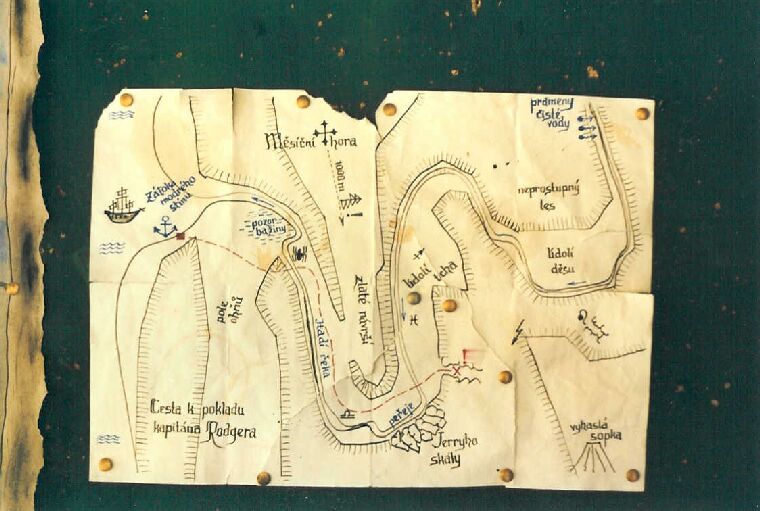 prameny
čisté
vody
Měsíční hora
1000 m
!
Zátoka
modrého
stínu
neprostupný
les
pozor
bažiny
údolí
děsu
údolí ticha
zlaté návrší
pole
ohňů
Hadí řeka
H
Cesta k pokladu
kapitána Rodgera
peřeje
Jerryho
skály
vyhaslá
sopka